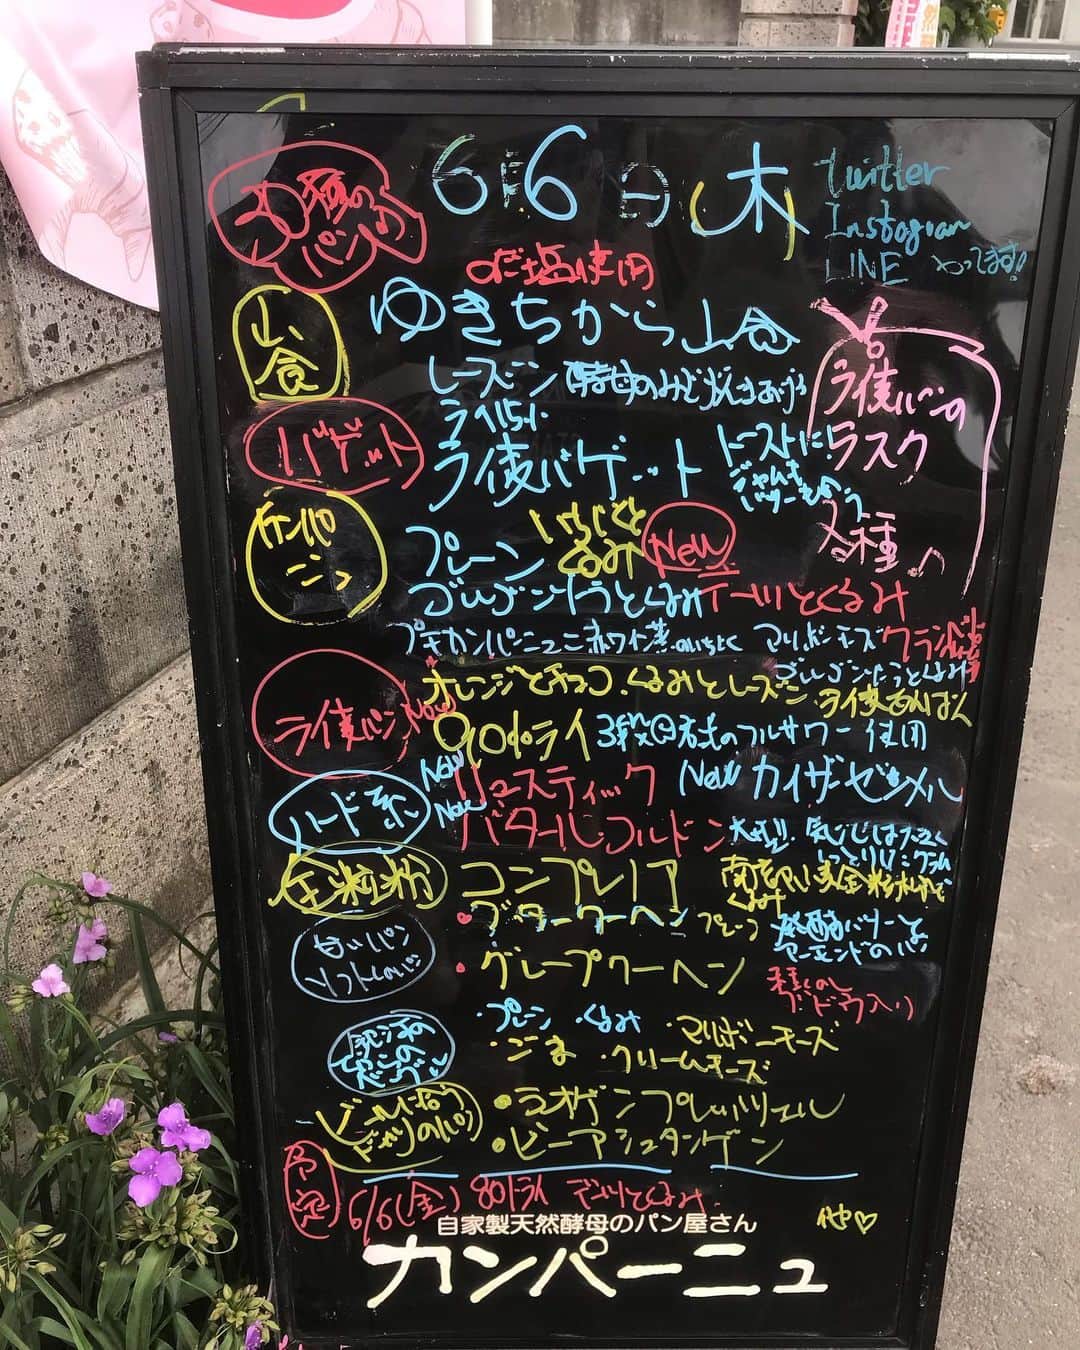 6月6日(木)
twitter
Instagram
LINE やってます!
20種の
パン
のだ塩使用
山食
ゆきちから山食
レーズン 酵母の
ライ麦パンの
ラスク
各種♪
バゲット
ライ15%
ライ麦バゲット
トーストに!
ジャムも
バターも
カンパーニュ
プレーン
いちじくと
くるみ
New
ゴルゴンゾーラとくるみ
デーツとくるみ
プチカンパーニュ
マリボーチーズ
ゴルゴンゾーラとくるみ
ライ麦パン
New
オレンジとチョコ・くるみとレーズン・ライ麦あんぱん
90%ライ 3段階方式のフルサワー使用
ハード系
New
リュスティック
New カイザーゼンメル
New
バタールコルドン
全粒粉
コンプレノア
甘いパン
ソフトなパン
・ブタークーヘン プレーン
発酵バターと
アーモンドのパン
・グレープクーヘン
種なし
ブドウ入り
ベーグル
・プレーン ・くるみ ・マリボーチーズ
・ごま ・クリームチーズ
ビールに合う
ドイツのパン
・ラオゲンプレッツェル
・ビーアシュタンゲン
予定
6/6(金) 80%ライ デーツとくるみ
他♡
自家製天然酵母のパン屋さん
カンパーニュ